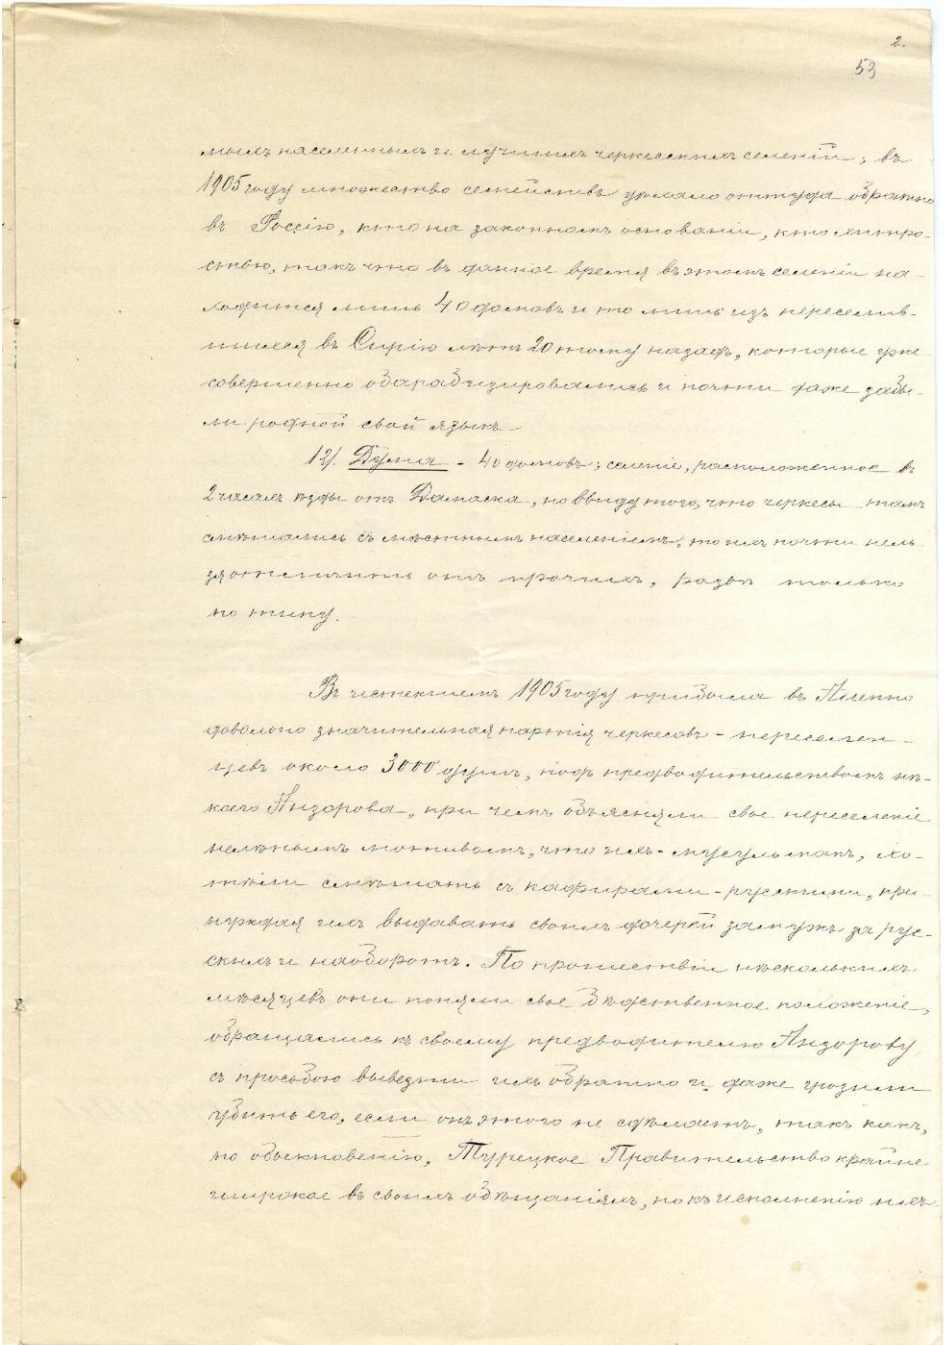 2.
53
мымъ населеннымъ и лучшимъ черкесскимъ селеній; въ
1905 году множество семействъ уѣхало оттуда обратно
въ Россію, кто на законномъ основаніи, кто хитро-
стью, такъ что въ данное время въ этомъ селеніи на-
ходится лишь 40 домовъ и то лишь изъ переселив-
шихся въ Сирію лѣтъ 20 тому назадъ, которые уже
совершенно обарабизировались и почти даже забы-
ли родной свой языкъ.
12/. Дума - 40 домовъ; селеніе, расположенное въ
2 часахъ ѣзды отъ Дамаска, но ввиду того, что черкесы тамъ
смѣшались съ мѣстнымъ населеніемъ, то ихъ почти нель-
зя отличить отъ прочихъ, развѣ только
по типу.
Въ истекшемъ 1905 году прибыла въ Алеппо
довольно значительная партія черкесовъ-переселен-
цевъ около 3000 душъ, подъ предводительствомъ нѣ-
коего Анзорова, при чемъ объясняли свое переселеніе
нелѣпымъ мотивомъ, что ихъ - мусульманъ, хо-
тѣли смѣшать съ кафирами-русскими, при-
нуждая ихъ выдавать своихъ дочерей замужъ за рус-
скихъ и наоборотъ. По прошествіи нѣсколькихъ
мѣсяцевъ они поняли свое бѣдственное положеніе,
обращались къ своему предводителю Анзорову
съ просьбою вывезти ихъ обратно и даже грозили
убить его, если онъ этого не сдѣлаетъ, такъ какъ,
по обыкновенію, Турецкое Правительство крайне
широкое въ своихъ обѣщаніяхъ, но къ исполненію ихъ